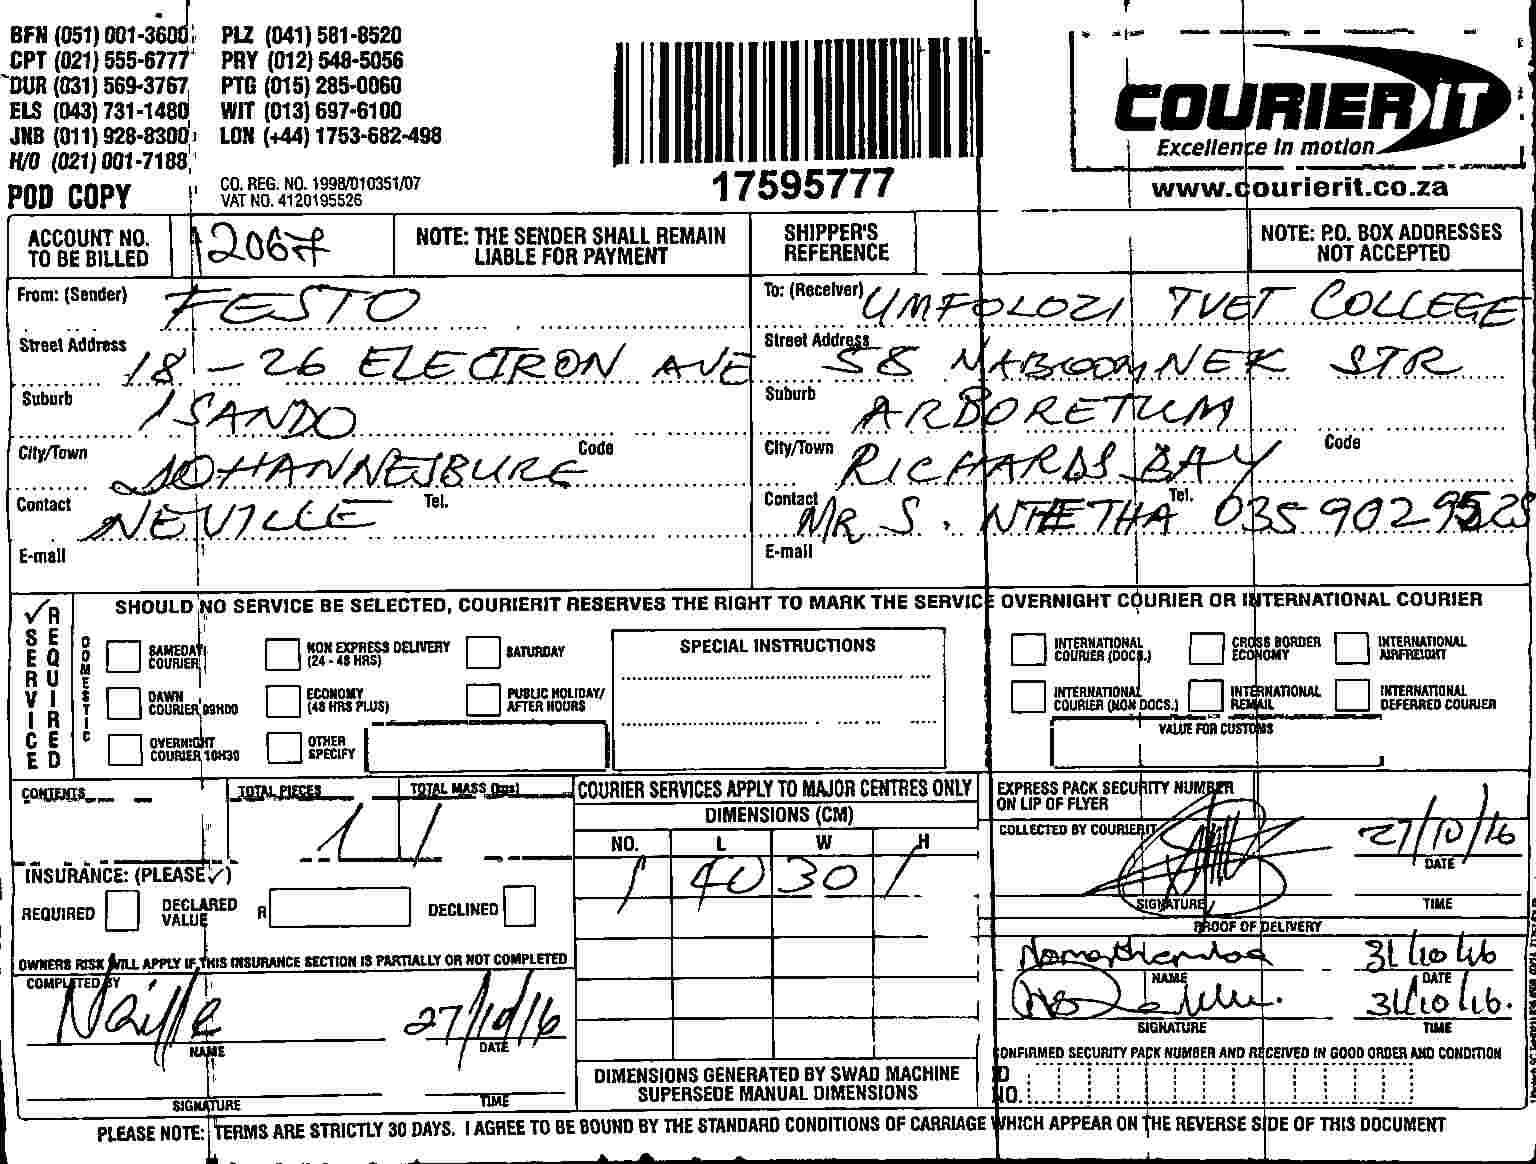 BFN (051) 001-3600 PLZ (041) 581-8520
CPT (021) 555-6777 PRY (012) 548-5056
DUR (031) 569-3767 PTG (015) 285-0060
ELS (043) 731-1480 WIT (013) 697-6100
JNB (011) 928-8300 LON (+44) 1753-682-498
H/O (021) 001-7188
POD COPY
CO. REG. NO. 1998/010351/07
VAT NO. 4120195526
17595777
COURIER IT
Excellence in motion
www.courierit.co.za
ACCOUNT NO. TO BE BILLED
A2067
NOTE: THE SENDER SHALL REMAIN LIABLE FOR PAYMENT
SHIPPER'S REFERENCE
NOTE: P.O. BOX ADDRESSES NOT ACCEPTED
From: (Sender) FESTO
Street Address 18 - 26 ELECTRON AVE
Suburb ISANDO
City/Town JOHANNESBURG Code
Contact NEVILLE Tel.
E-mail
To: (Receiver) UMFOLOZI TVET COLLEGE
Street Address 58 NABOOMNEK STR
Suburb ARBORETUM
City/Town RICHARDS BAY Code
Contact MR S. NTHETHA Tel. 035 902
E-mail
✓ SERVICE REQUIRED
SHOULD NO SERVICE BE SELECTED, COURIERIT RESERVES THE RIGHT TO MARK THE SERVICE OVERNIGHT COURIER OR INTERNATIONAL COURIER
DOMESTIC
SAMEDAY COURIER
NON EXPRESS DELIVERY (24 - 48 HRS)
SATURDAY
DAWN COURIER 09H00
ECONOMY (48 HRS PLUS)
PUBLIC HOLIDAY/ AFTER HOURS
OVERNIGHT COURIER 10H30
OTHER SPECIFY
SPECIAL INSTRUCTIONS
INTERNATIONAL COURIER (DOCS.)
CROSS BORDER ECONOMY
INTERNATIONAL AIRFREIGHT
INTERNATIONAL COURIER (NON DOCS.)
INTERNATIONAL REMAIL
INTERNATIONAL DEFERRED COURIER
VALUE FOR CUSTOMS
CONTENTS
TOTAL PIECES 1
TOTAL MASS (kgs) 1
INSURANCE: (PLEASE ✓)
REQUIRED
DECLARED VALUE R
DECLINED
OWNERS RISK WILL APPLY IF THIS INSURANCE SECTION IS PARTIALLY OR NOT COMPLETED
COMPLETED BY
Neville 27/10/16
NAME DATE
SIGNATURE TIME
COURIER SERVICES APPLY TO MAJOR CENTRES ONLY
DIMENSIONS (CM)
NO. L W H
1 40 30 1
DIMENSIONS GENERATED BY SWAD MACHINE
SUPERSEDE MANUAL DIMENSIONS
EXPRESS PACK SECURITY NUMBER
ON LIP OF FLYER
COLLECTED BY COURIERIT
27/10/16
DATE
SIGNATURE TIME
PROOF OF DELIVERY
31/10/16
NAME DATE
31/10/16.
SIGNATURE TIME
CONFIRMED SECURITY PACK NUMBER AND RECEIVED IN GOOD ORDER AND CONDITION
ID NO.
PLEASE NOTE: TERMS ARE STRICTLY 30 DAYS. I AGREE TO BE BOUND BY THE STANDARD CONDITIONS OF CARRIAGE WHICH APPEAR ON THE REVERSE SIDE OF THIS DOCUMENT